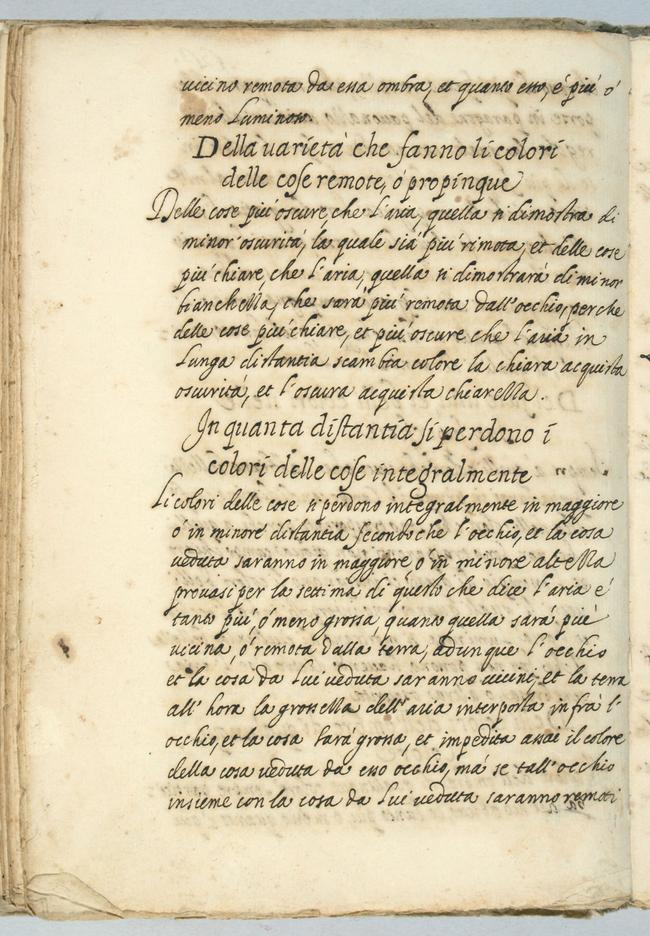 uicino remota da essa ombra, et quanto esso, é piu' ó
meno Luminoso.
Della uarietà che fanno li colori
delle cose remote, ó propinque
Delle cose piu' oscure, che l'aria, quella si dimostra di
minor' oscuritá, la quale sia' piu' rimota, et delle cose
piu' chiare, che l'aria, quella si dimostrará di minor
bianchezza, che sará piu' remota dall'occhio, perche
delle cose piu' chiare, et piu' oscure che l'aria in
Lunga distantia scambia colore la chiara acquista
oscuritá, et l'oscura acquista chiarezza.
In quanta distantia si perdono i
colori delle cose integralmente
Li colori delle cose si perdono integralmente in maggiore
ó in minore distantia secondo che l'occhio, et la cosa
ueduta saranno in maggiore, ó in minore altezza
prouasi per la settima di questo che dice l'aria é
tanto piu', ó meno grossa, quanto quella sará piu'
uicina, ó remota dalla terra, adunque l'occhio
et la cosa da Lui ueduta saranno uicini, et la terra
all'hora la grossezza dell'aria interposta infrà l'
occhio, et la cosa sará grossa, et impedita assai il colore
della cosa ueduta da esso occhio, má se tall'occhio
insieme con la cosa da Lui ueduta saranno remoti